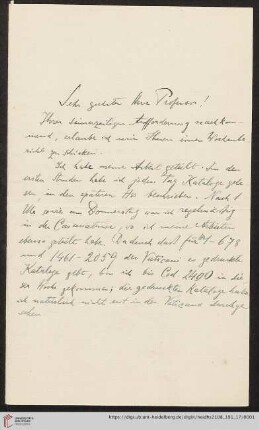 Sehr geehrter Herr Professor!
Ihrer seinerzeitigen Aufforderung nachkom-
mend, erlaube ich mir Ihnen einen Wochenbe-
richt zu schicken.
Ich habe meine Arbeit geteilt. In den
ersten Stunden habe ich jeden Tag Kataloge gele
sen, in den späteren
Uhr, sowie am Donnerstag war ich regelmäßig
in der Casanatense, wo ich meine Arbeiten
ebenso geteilt habe. Dadurch daß für 1-678
und 1461-2059 der Vaticani es gedruckte
Kataloge gibt, bin ich bis Cod 2400 in die
ser Woche gekommen; die gedruckten Kataloge habe
ich natürlich nicht erst in der Vaticana durchge
sehen.